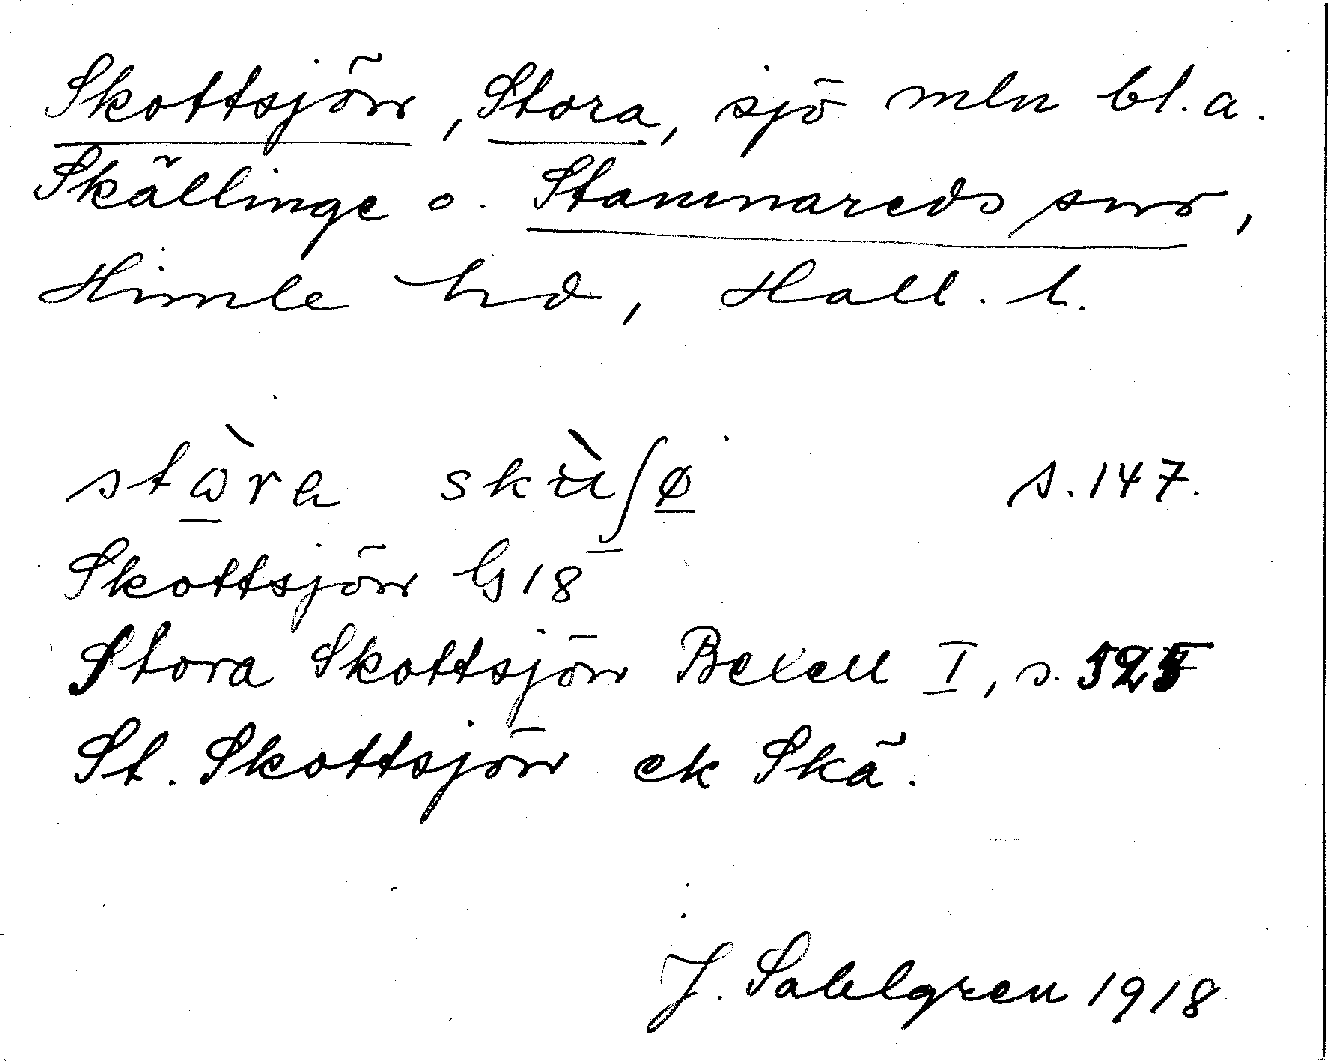 Skottsjön, Stora, sjö mln bl. a.
Skällinge o. Stamnareds snr,
Himle hd, Hall. l.
stòra skùʃø s. 147.
Skottsjön G18
Stora Skottsjön Bexell I, s. 525
St. Skottsjön ek Skä.
J. Sahlgren 1918